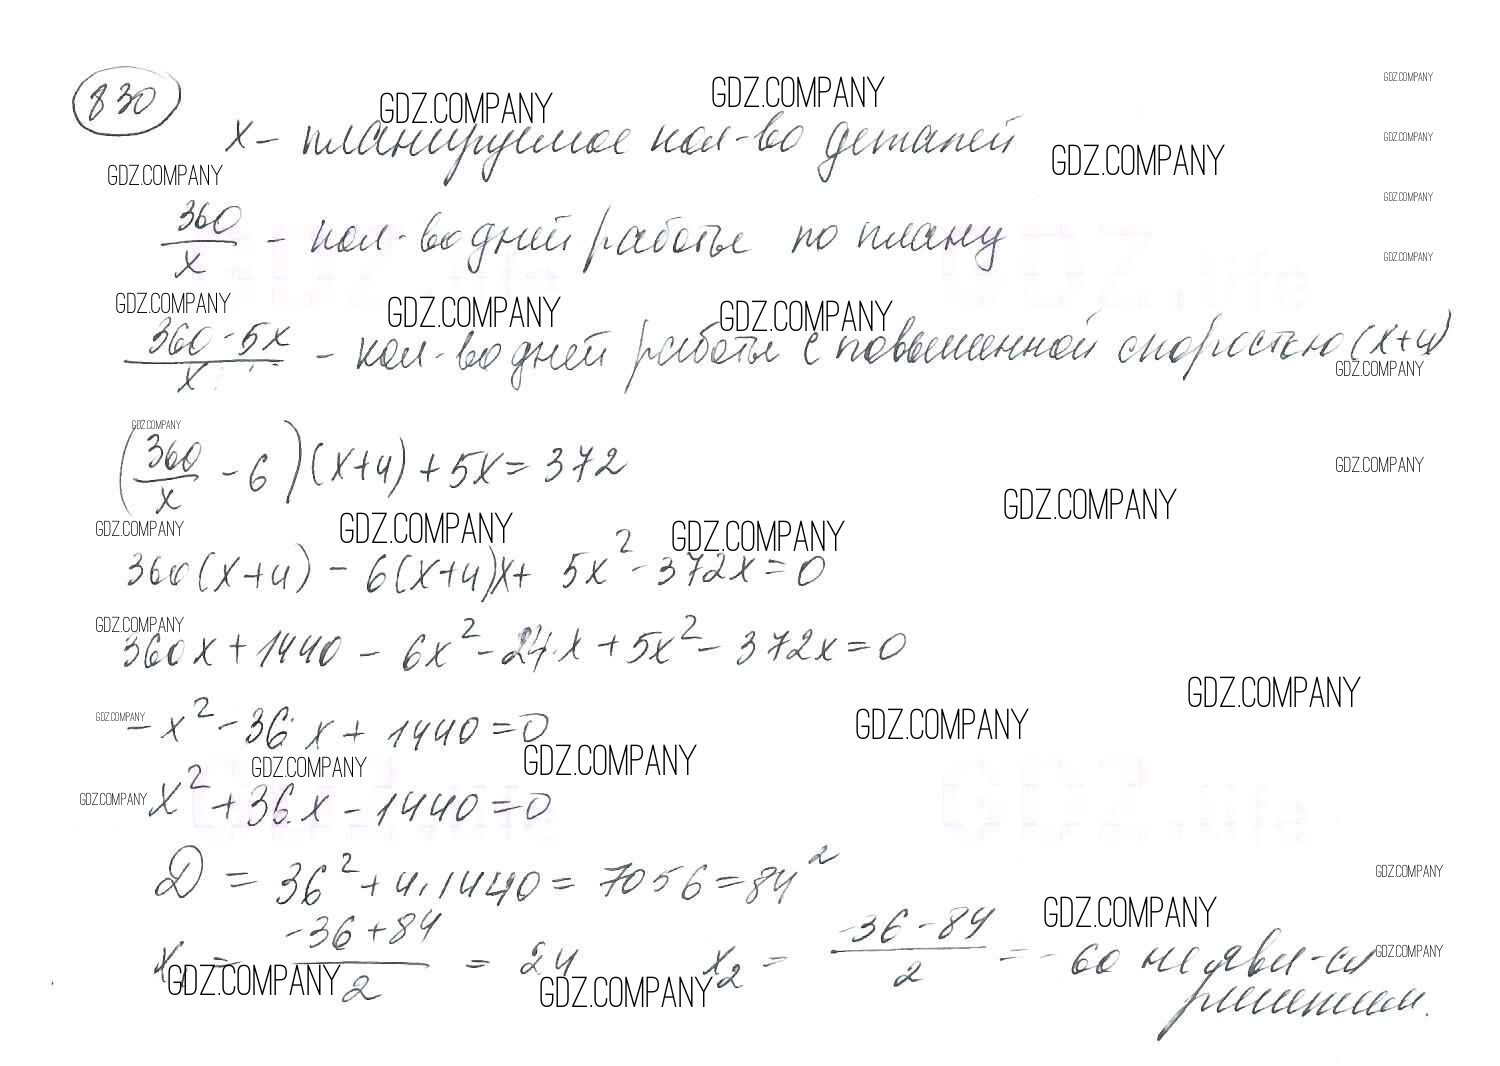 830
GDZ.COMPANY GDZ.COMPANY GDZ.COMPANY
x - планируемое кол-во деталей
GDZ.COMPANY GDZ.COMPANY GDZ.COMPANY
360/x - кол-во дней работы по плану
GDZ.COMPANY GDZ.COMPANY
GDZ.COMPANY GDZ.COMPANY GDZ.COMPANY
(360 - 5x)/x - кол-во дней работы с повышенной скоростью (x+4)
GDZ.COMPANY
GDZ.COMPANY
(360/x - 6)(x+4) + 5x = 372
GDZ.COMPANY
GDZ.COMPANY GDZ.COMPANY GDZ.COMPANY GDZ.COMPANY
360(x+4) - 6(x+4)x + 5x² - 372x = 0
GDZ.COMPANY
360x + 1440 - 6x² - 24x + 5x² - 372x = 0
GDZ.COMPANY
GDZ.COMPANY GDZ.COMPANY
- x² - 36x + 1440 = 0
GDZ.COMPANY GDZ.COMPANY
GDZ.COMPANY
x² + 36x - 1440 = 0
D = 36² + 4·1440 = 7056 = 84²
GDZ.COMPANY
GDZ.COMPANY
x₁ = (-36 + 84)/2 = 24 x₂ = (-36 - 84)/2 = -60 не явл-ся
GDZ.COMPANY
GDZ.COMPANY GDZ.COMPANY
решением.